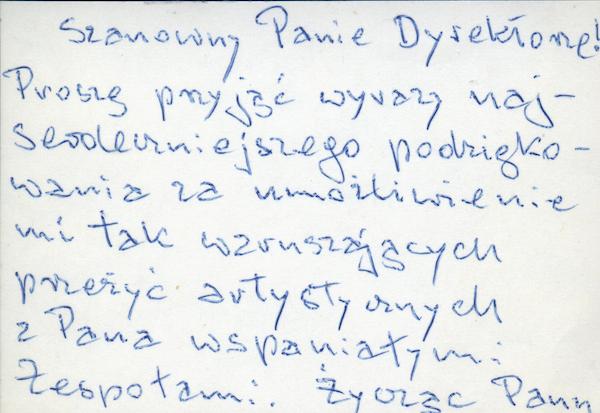 Szanowny Panie Dyrektorze!
Proszę przyjąć wyrazy naj-
serdeczniejszego podzięko-
wania za umożliwienie
mi tak wzruszających
przeżyć artystycznych
z Pana wspaniałymi
Zespołami. Życząc Panu